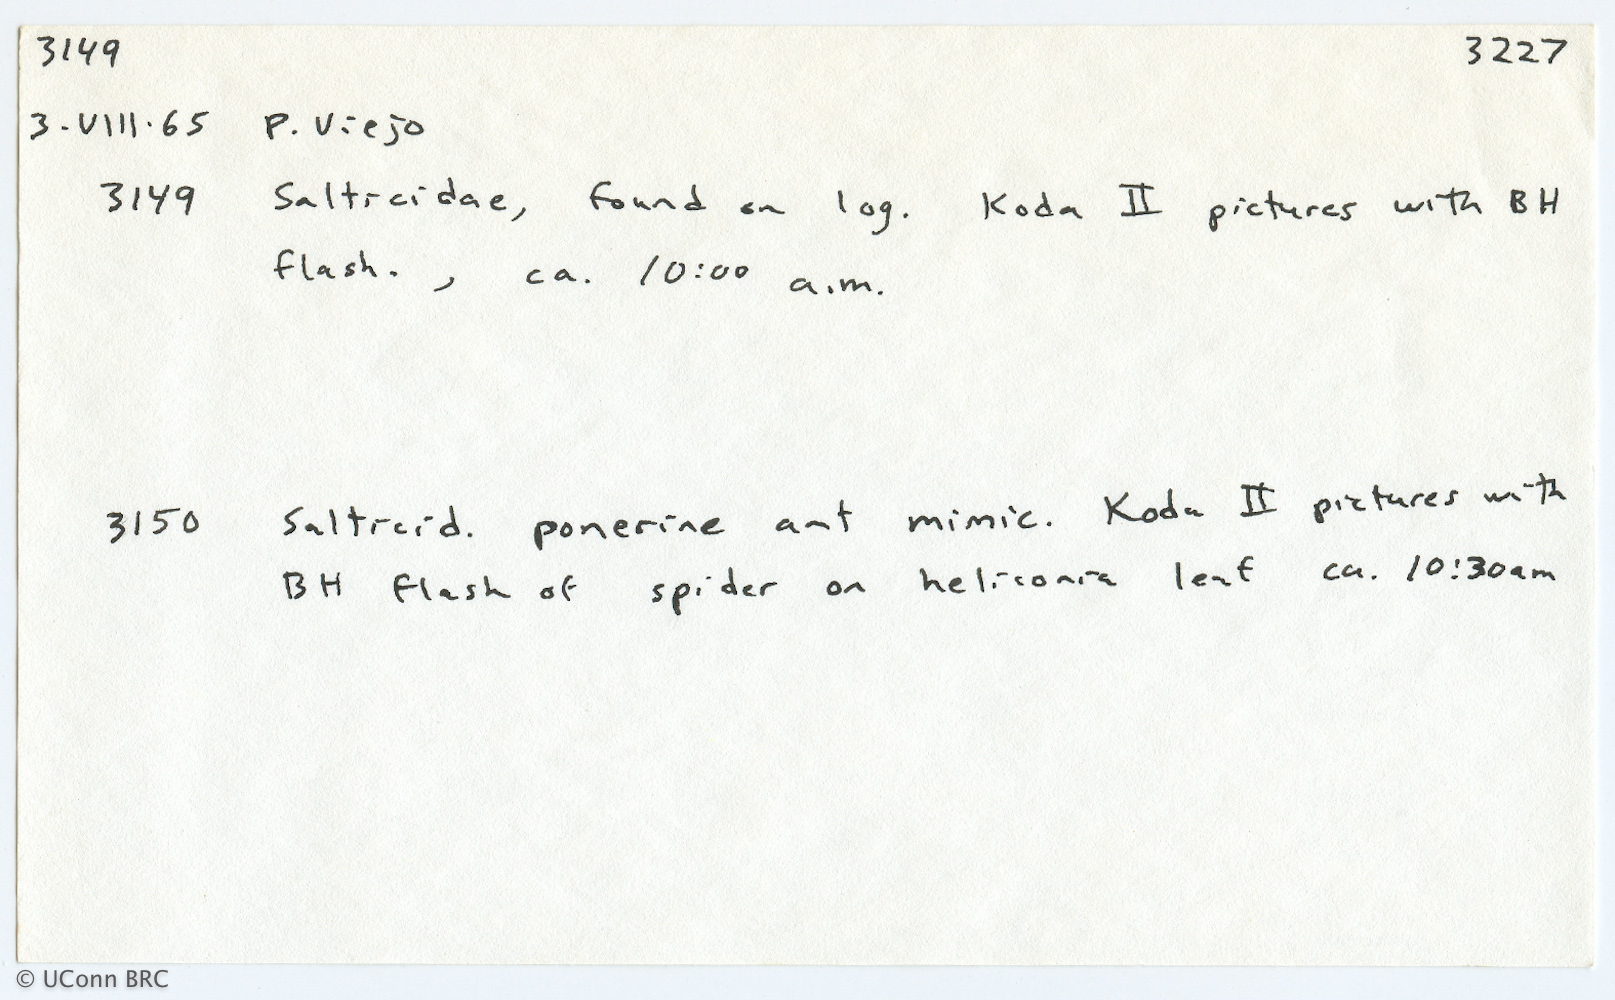 3149 3227
3-VIII-65 P. Viejo
3149 Salticidae, found on log. Koda II pictures with BH
flash. , ca. 10:00 a.m.
3150 Salticid. ponerine ant mimic. Koda II pictures with
BH flash of spider on heliconia leaf ca. 10:30am
© UConn BRC